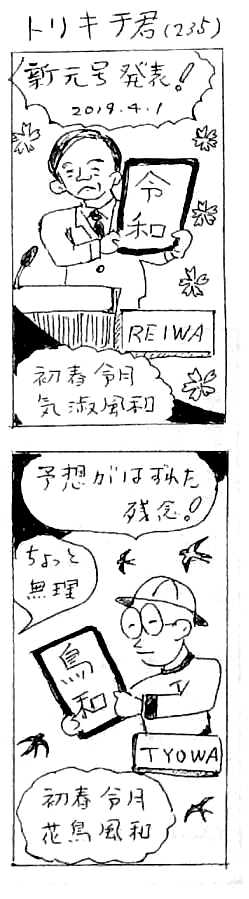 トリキチ君(235)
新元号発表!
2019.4.1
令
和
REIWA
初春令月
気淑風和
予想がはずれた
残念!
ちょっと
無理
鳥
和
T
TYOWA
初春令月
花鳥風和